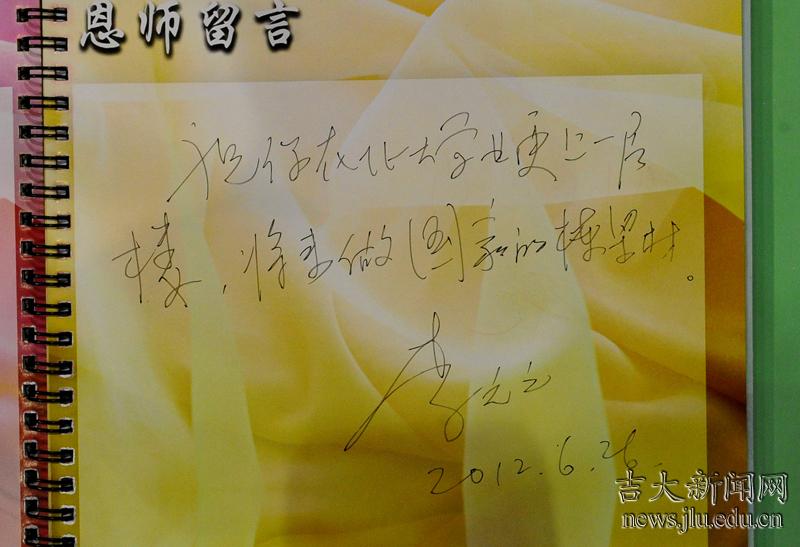 恩师留言
祝你在北大学业更上一层
楼，将来做国家的栋梁材。
李元元
2012.6.26.
吉大新闻网
news.jlu.edu.cn